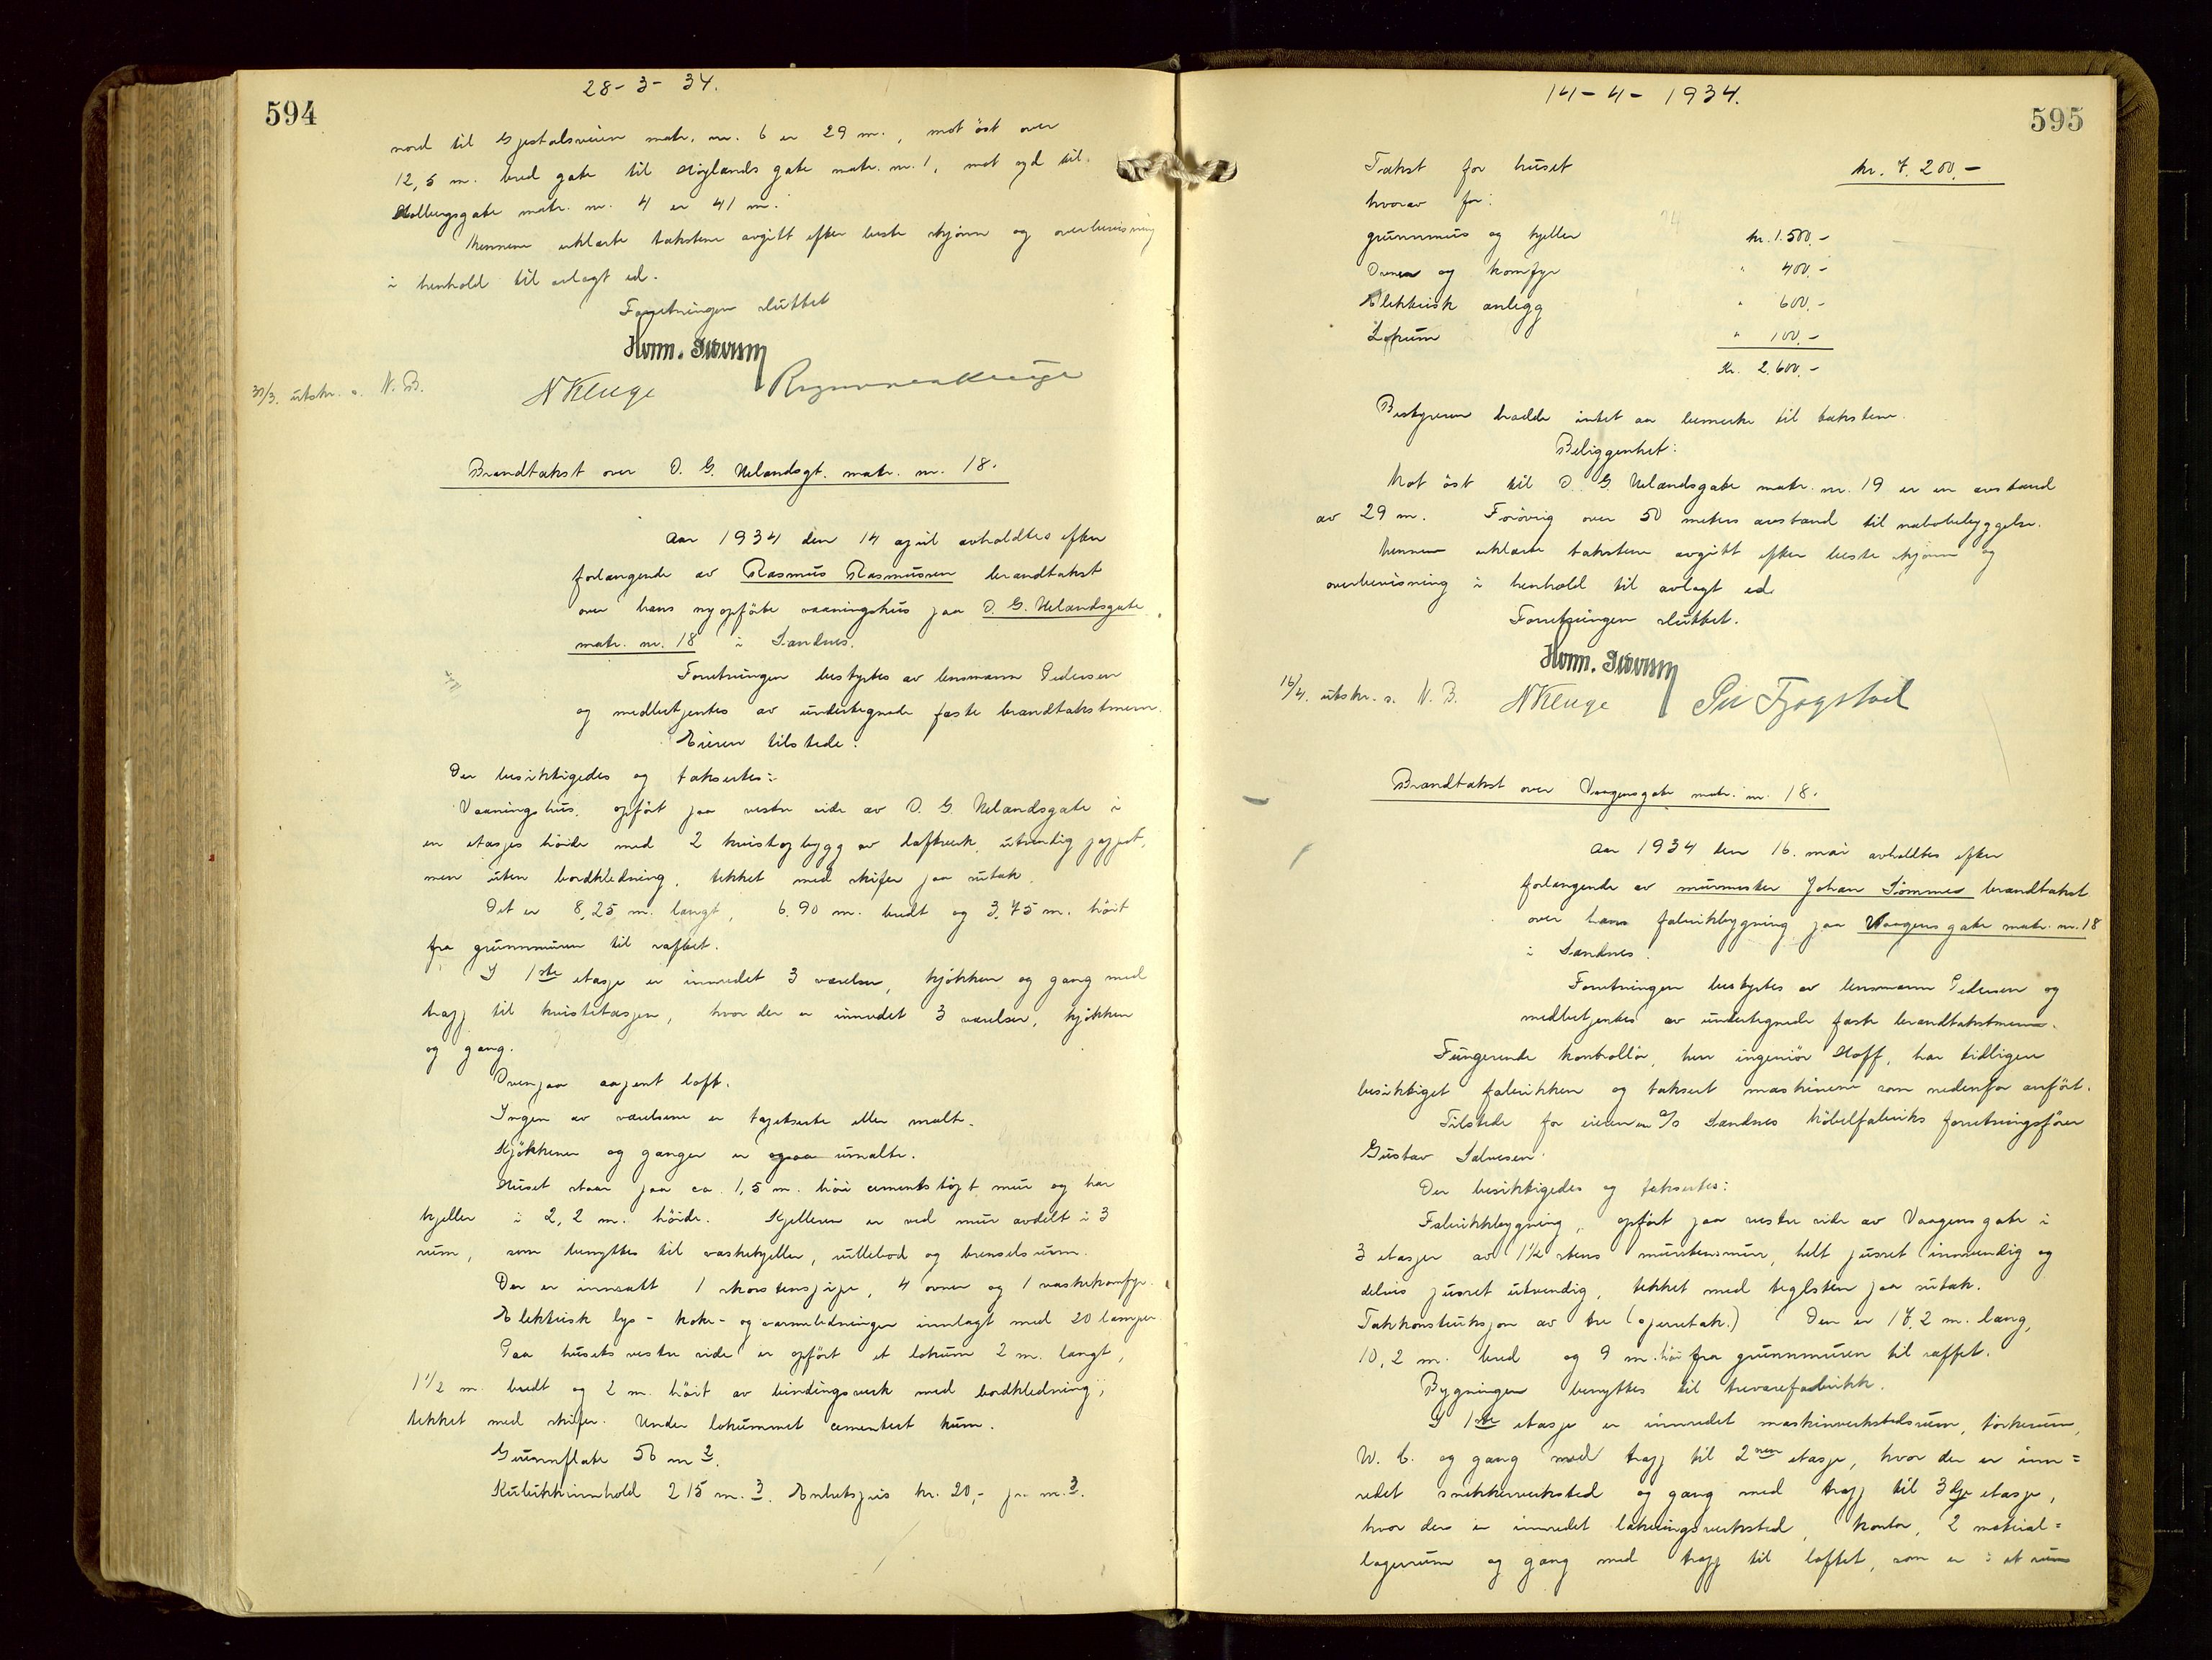 594
28-3-34.
nord til Gjestalsveien matr. nr. 6 er 29 m., mot öst over
12,5 m. bred gate til Höylands gate matr. nr. 1, mot syd til
Holbergsgate matr. nr. 4 er 41 m.
Mennene erklærte takstene avgitt efter beste skjönn og overbevisning
i henhold til avlagt ed.
Forretningen sluttet
N Kluge
31/3. utskr. s. N. B.
Brandtakst over O. G. Uelandsgt. matr. nr. 18.
Aar 1934 den 14 april avholdtes efter
forlangende av Rasmus Rasmussen brandtakst
over hans nyopförte vaaningshus paa O. G. Uelandsgate
matr. nr. 18 i Sandnes.
Forretningen bestyrtes av lensmann Pedersen
og medbetjentes av undertegnede faste brandtakstmenn.
Eieren tilstede.
Der besiktigedes og takseres:
Vaaningshus, opfört paa vestre side av O. G. Uelandsgate i
en etasjes höide med 2 kvistopbygg av lafteverk, utvendig pappet,
men uten bordkledning, tekket med skifer paa sutak.
Det er 8,25 m. langt, 6,90 m. bredt og 3,75 m. höit
fra grunnmuren til raftet.
I 1ste etasje er innredet 3 værelser, kjökken og gang med
trapp til kvistetasjen, hvor der er innredet 3 værelser, kjökken
og gang.
Ovenpaa aapent loft.
Ingen av værelsene er tapetserte eller malte.
Kjökkener og ganger er ogsaa umalte.
Huset staar paa ca. 1,5 m. höi cementstöpt mur og har
kjeller i 2,2 m. höide. Kjelleren er ved mur avdelt i 3
rum, som benyttes til vaskekjeller, rullebod og brenselsrum.
Der er innsatt 1 skorstenspipe, 4 ovner og 1 vaskekomfyr.
Elektrisk lys- koke- og varmeledninger innlagt med 20 lamper.
Paa husets vestre side er opfört et lokum 2 m. langt,
1 1/2 m. bredt og 2 m. höit av bindingsverk med bordkledning,
tekket med skifer. Under lokummet cementert kum.
Grunnflate 56 m 2.
Kubikkinnhold 215 m. 3. Enhetspris kr. 20,- pr. m. 3.
595
14-4-1934.
Takst for huset kr. 7.200,-
hvorav for:
grunnmur og kjeller kr. 1.500,-
Ovner og komfyr " 400,-
Elektrisk anlegg " 600,-
Lokum " 100,-
Kr. 2.600,-
Bestyreren hadde intet aa bemerke til takstene.
Beliggenhet:
Mot öst til O. G. Uelandsgate matr. nr. 19 er en avstand
av 29 m. Forövrig over 50 meters avstand til nabobebyggelse.
Mennene erklærte takstene avgitt efter beste skjönn og
overbevisning i henhold til avlagt ed.
Forretningen sluttet.
16/4. utskr. s. N. B.
N Kluge Per Fjogstad
Brandtakst over Vaagensgate matr. nr. 18.
Aar 1934 den 16. mai avholdtes efter
forlangende av murmester Johan Sömmes brandtakst
over hans fabrikbygning paa Vaagensgate matr. nr. 18
i Sandnes.
Forretningen bestyrtes av lensmann Pedersen og
medbetjentes av undertegnede faste brandtakstmenn.
Fungerende kontrollör, herr ingeniör Hoff, har tidligere
besiktiget fabrikken og taksert maskinene som nedenfor anfört.
Tilstede for eieren er A/S Sandnes Möbelfabriks forretningsförer
Gustav Salvesen.
Der besiktigedes og takseres:
Fabrikkbygning, opfört paa vestre side av Vaagensgate i
3 etasjer av 1 1/2 stens murstensmur, helt pusset innvendig og
delvis pusset utvendig, tekket med teglsten paa sutak.
Takkonstruksjon av tre (sperretak.) Den er 17,2 m. lang,
10,2 m. bred og 9 m. höi fra grunnmuren til raftet.
Bygningen benyttes til trevarefabrikk.
I 1ste etasje er innredet maskinverkstedsrum, törkerum,
W. C. og gang med trapp til 2nen etasje, hvor der er inn=
redet snekkerverksted og gang med trapp til 3dje etasje,
hvor der er innredet lakeringsverksted, kontor, 2 material=
lagerrum og gang med trapp til loftet, som er i et rum